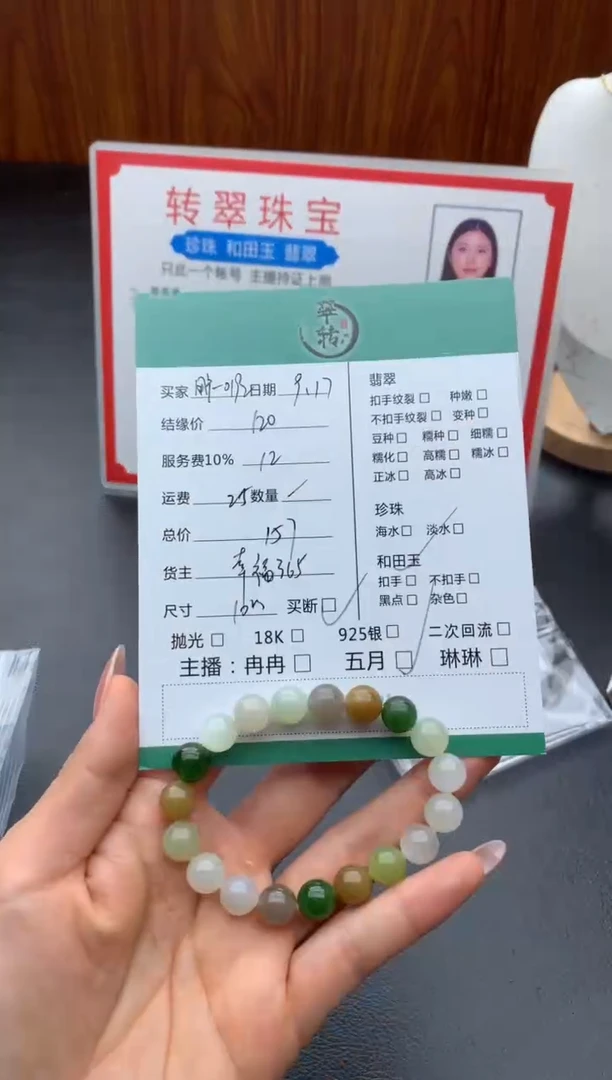 转翠珠宝
珍珠 和田玉 翡翠
只此一个帐号 主播持证上岗
翠转
买家 日期 9.17
结缘价 120
服务费10% 12
运费 25 数量
总价 157
货主 幸福365
尺寸 买断□
翡翠
扣手纹裂□ 种嫩□
不扣手纹裂□ 变种□
豆种□ 糯种□ 细糯□
糯化□ 高糯□ 糯冰□
正冰□ 高冰□
珍珠
海水□ 淡水□
和田玉
扣手□ 不扣手□
黑点□ 杂色□
抛光□ 18K□ 925银□ 二次回流□
主播：冉冉□ 五月□ 琳琳□